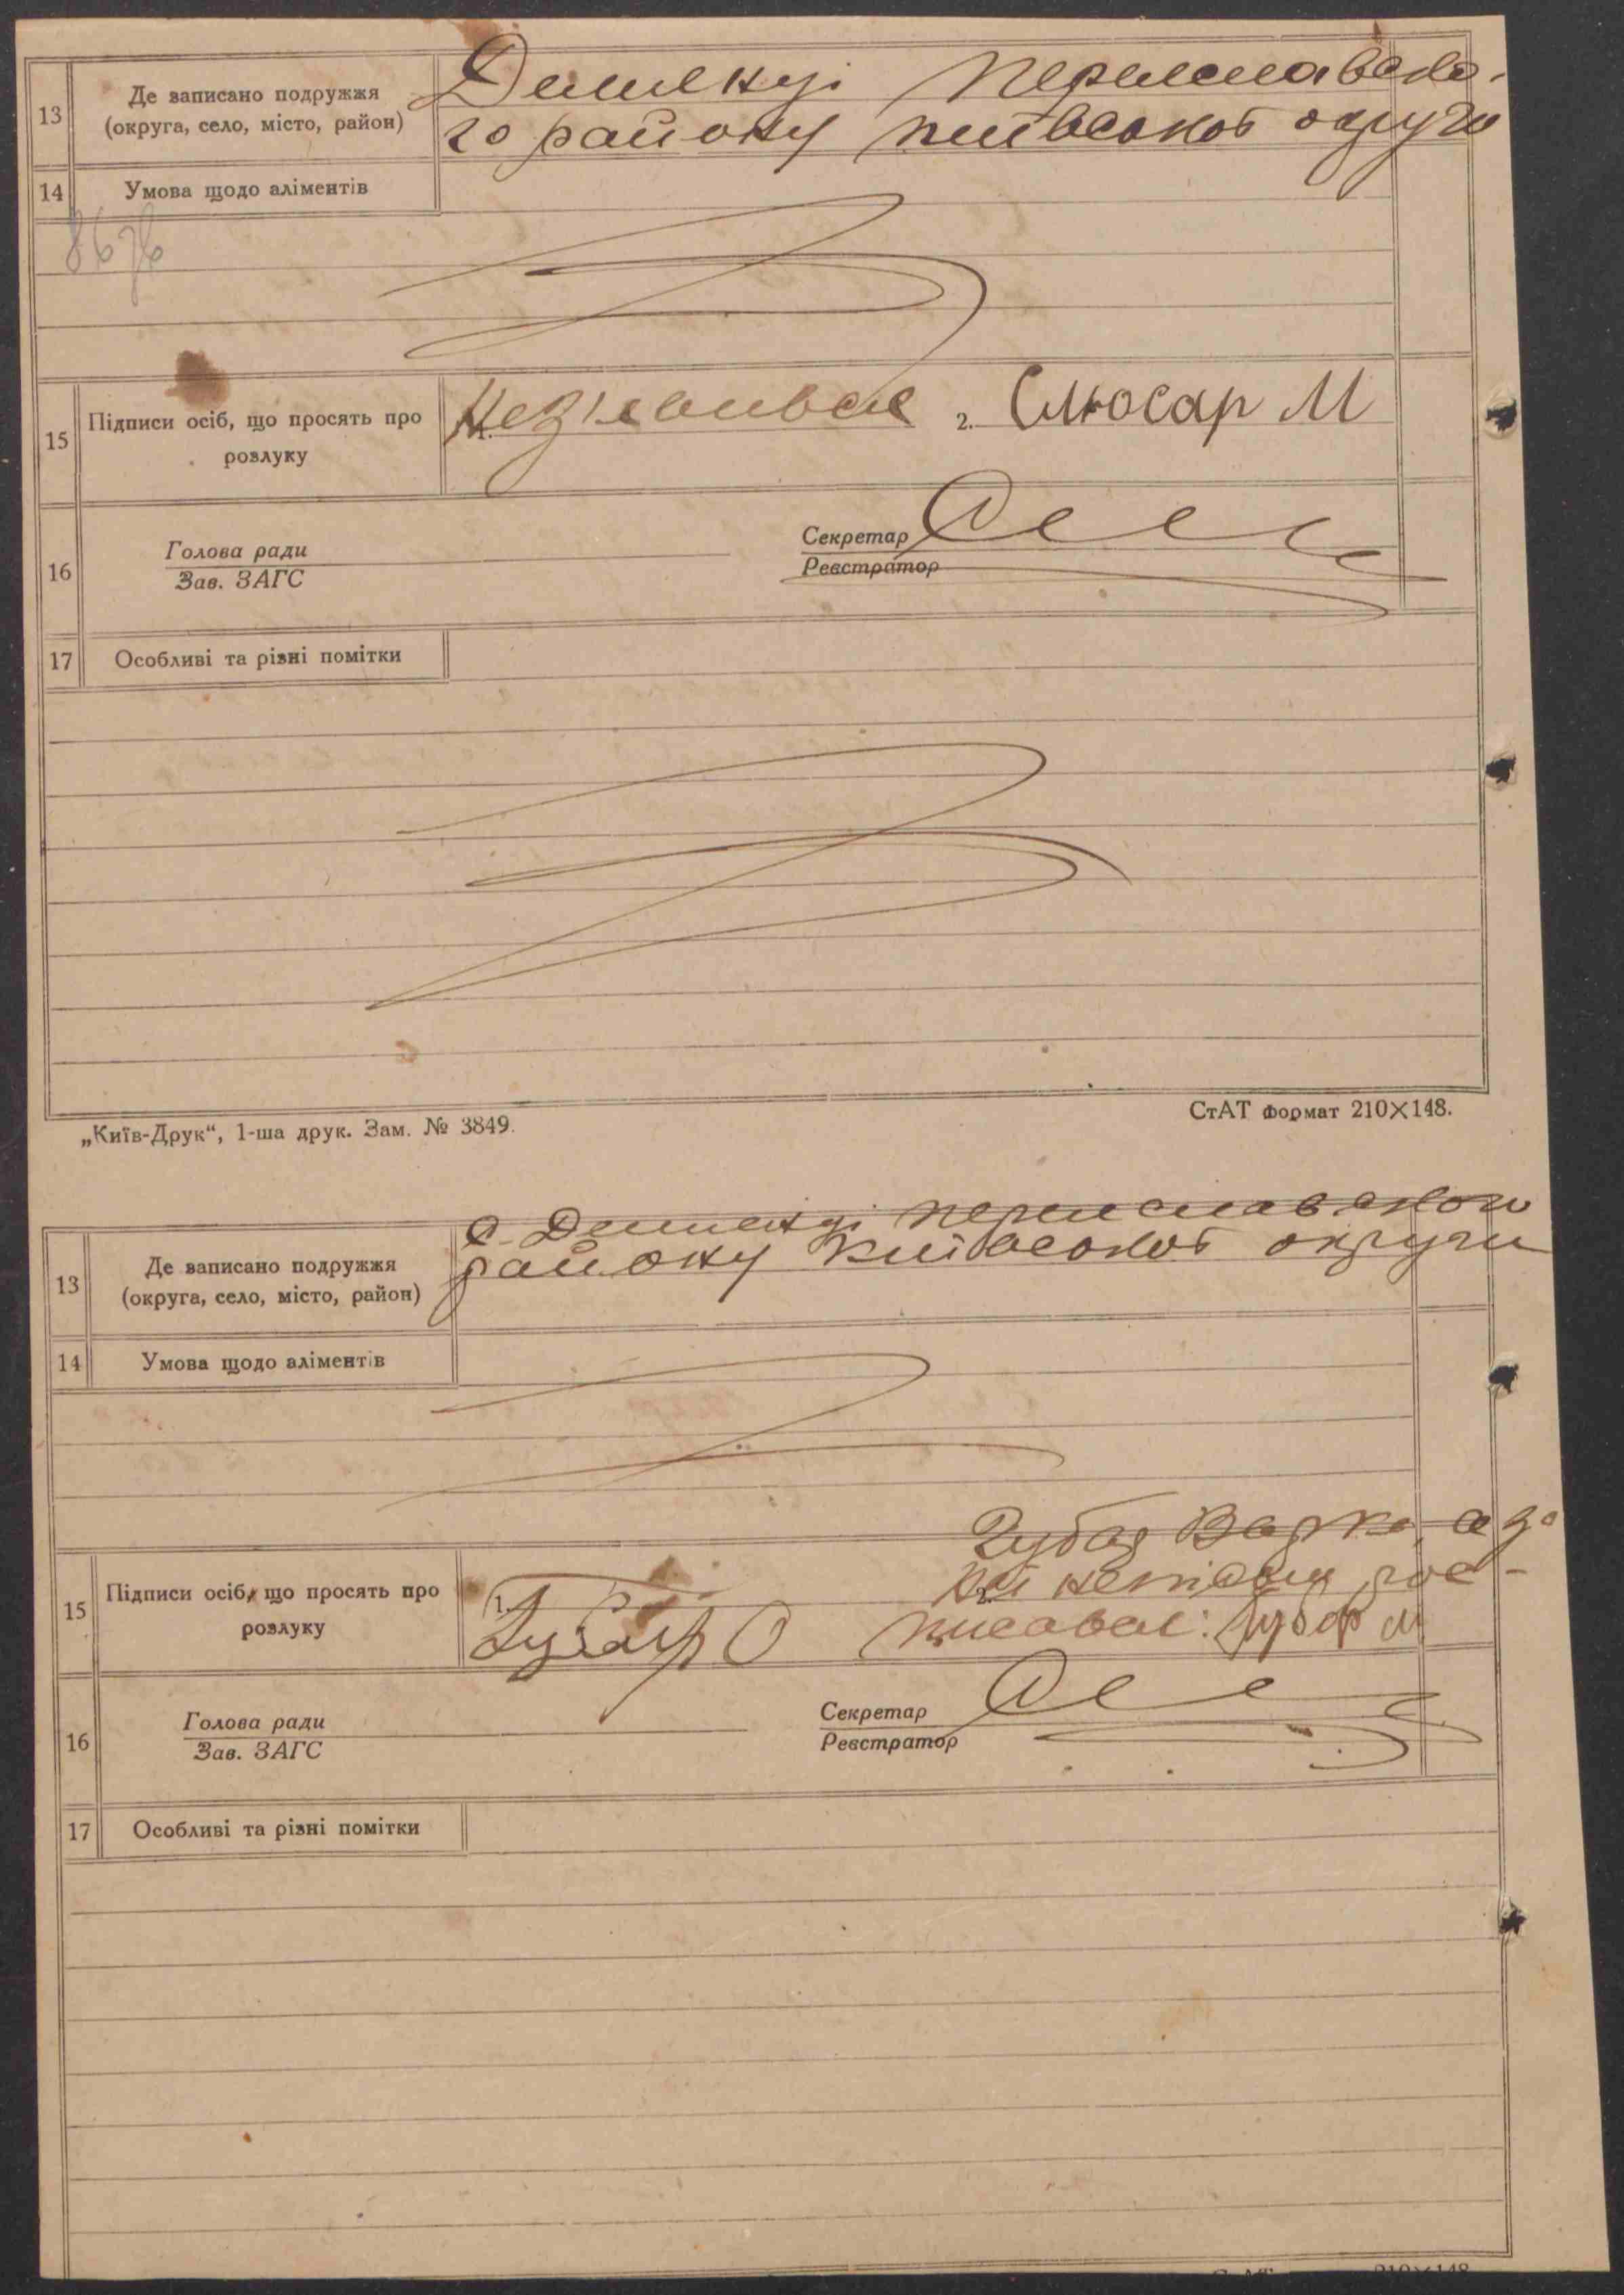 13 Де записано подружжя
(округа, село, місто, район)
Демянці Переяславсько-
го району Київської округи
14 Умова щодо аліментів
15 Підписи осіб, що просять про
розлуку
1. 2. Слюсар М
16 Голова ради
Зав. ЗАГС
Секретар
Реєстратор
17 Особливі та різні помітки
„Київ-Друк“, 1-ша друк. Зам. № 3849.
СтАТ формат 210×148.
с. Демянці Переяславського
13 Де записано подружжя
(округа, село, місто, район)
району Київської округи
14 Умова щодо аліментів
а за
15 Підписи осіб, що просять про
розлуку
1. 2.
16 Голова ради
Зав. ЗАГС
Секретар
Реєстратор
17 Особливі та різні помітки